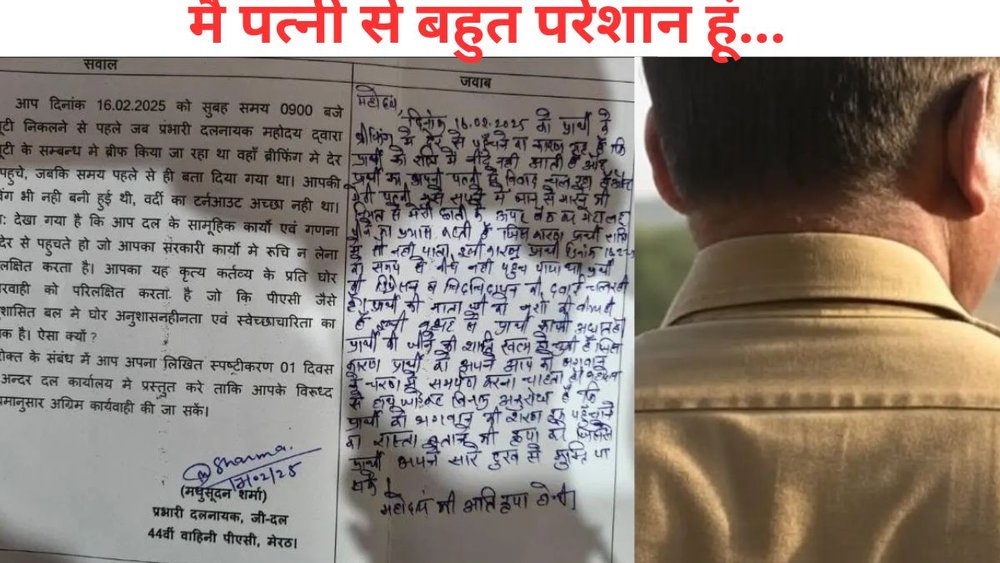 मै पत्नी से बहुत परेशान हूं...
सवाल
आप दिनांक 16.02.2025 को सुबह समय 0900 बजे
यूटी निकलने से पहले जब प्रभारी दलनायक महोदय द्वारा
यूटी के सम्बन्ध मे ब्रीफ किया जा रहा था वहाँ ब्रीफिंग मे देर
पहुचे, जबकि समय पहले से ही बता दिया गया था। आपकी
भी नही बनी हुई थी, वर्दी का टर्नआउट अच्छा नही था।
देखा गया है कि आप दल के सामूहिक कार्यो एवं गणना
देर से पहुचते हो जो आपका सरकारी कार्यो मे रुचि न लेना
लक्षित करता है। आपका यह कृत्य कर्तव्य के प्रति घोर
रवाही को परिलक्षित करता है जो कि पीएसी जैसे
शासित बल मे घोर अनुशासनहीनता एवं स्वेच्छाचारिता का
क है। ऐसा क्यों ?
रोक्त के संबंध में आप अपना लिखित स्पष्टीकरण 01 दिवस
अन्दर दल कार्यालय मे प्रस्तुत करे ताकि आपके विरूध्द
यमानुसार अग्रिम कार्यवाही की जा सकें।
Sharma
(मधुसूदन शर्मा)
प्रभारी दलनायक, जी-दल
44वी वाहिनी पीएसी, मेरठ।
जवाब
महोदय,
दिनांक 16.02.2025 को प्रार्थी के
ब्रीफिंग मे देर से पहुँचने का कारण यह है कि
प्रार्थी को रात्रि मे नींद नही आती है और
प्रार्थी का अपनी पत्नी से विवाद चल रहा है
मेरी पत्नी सपने मे
से मेरी छाती के ऊपर बैठ कर मेरा
पीने का प्रयास करती है जिस कारण प्रार्थी रात्रि
मे सो नही पाता, इसी कारण प्रार्थी दिनांक
को समय से नही पहुंच पाया था
डिप्रेशन व चिड़चिड़ापन की दवाई चल रही
है। प्रार्थी की माता जी को नसो की
है
प्रार्थी की जीने की
कारण प्रार्थी को अपने आप को भगवान
के चरणो मे समर्पण करना चाहता
से अनुरोध है कि
प्रार्थी को भगवान की शरण पहुँचाने
का रास्ता बताने की कृपा करे जिससे
प्रार्थी अपने सारे दुख से मुक्ति पा
सके।
महोदय की अति कृपा होगी